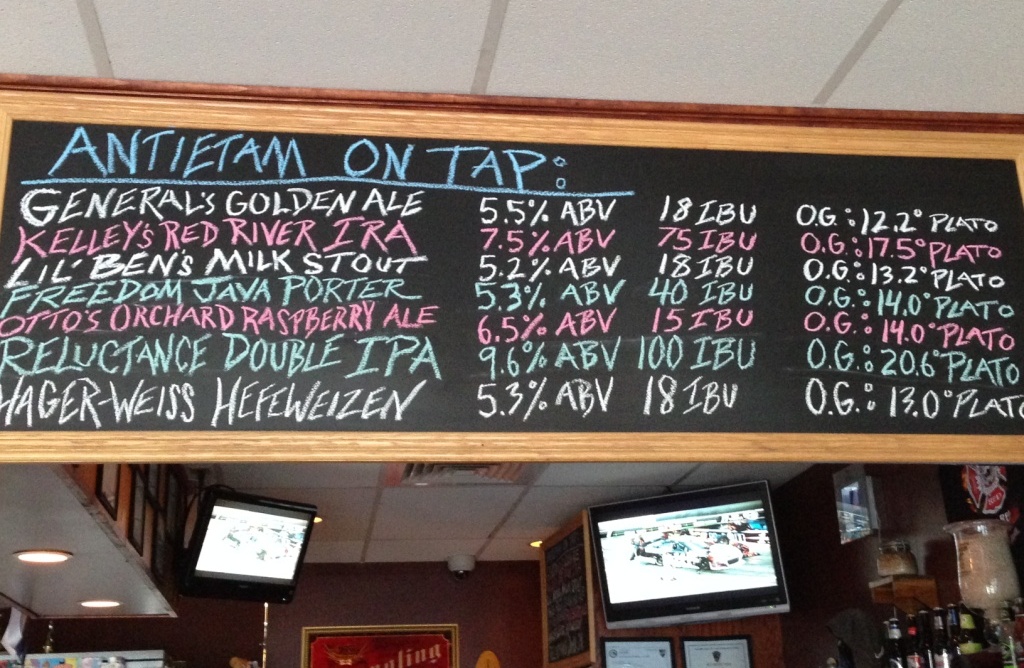 ANTIETAM ON TAP:
GENERAL'S GOLDEN ALE 5.5% ABV 18 IBU O.G.: 12.2° PLATO
KELLEY'S RED RIVER IRA 7.5% ABV 75 IBU O.G.: 17.5° PLATO
LIL' BEN'S MILK STOUT 5.2% ABV 18 IBU O.G.: 13.2° PLATO
FREEDOM JAVA PORTER 5.3% ABV 40 IBU O.G.: 14.0° PLATO
OTTO'S ORCHARD RASPBERRY ALE 6.5% ABV 15 IBU O.G.: 14.0° PLATO
RELUCTANCE DOUBLE IPA 9.6% ABV 100 IBU O.G.: 20.6° PLATO
HAGER-WEISS HEFEWEIZEN 5.3% ABV 18 IBU O.G.: 13.0° PLATO